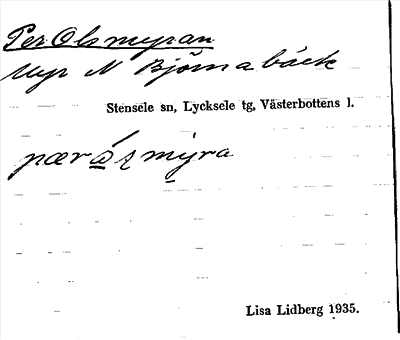 Per Olsmyran
Myr N Björnabäck
Stensele sn, Lycksele tg, Västerbottens l.
pær åʂ mýra
Lisa Lidberg 1935.